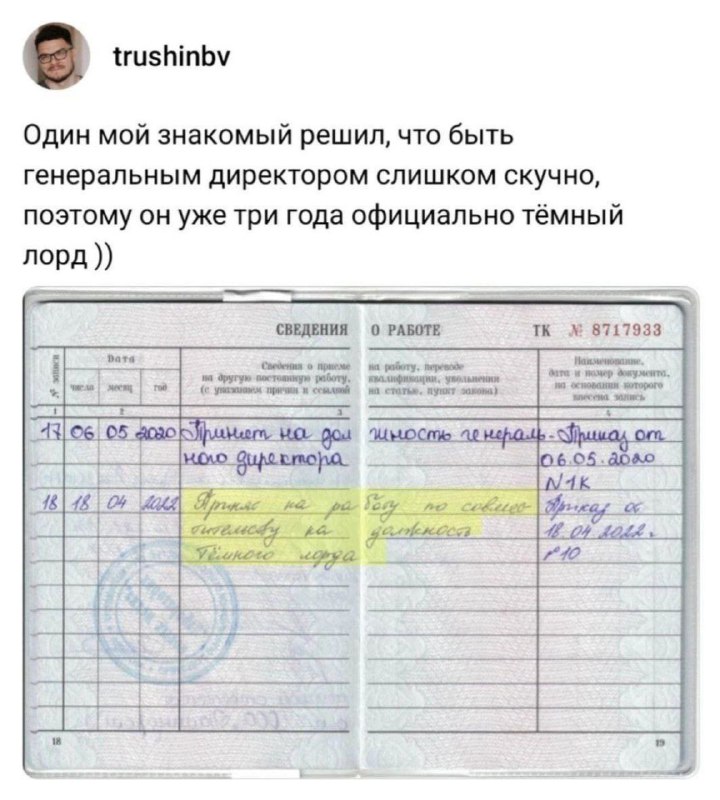 trushinbv
Один мой знакомый решил, что быть
генеральным директором слишком скучно,
поэтому он уже три года официально тёмный
лорд ))
СВЕДЕНИЯ О РАБОТЕ ТК № 8717933
№ записи
Дата
число месяц год
Сведения о приеме на работу, переводе
на другую постоянную работу, квалификации, увольнении
(с указанием причин и ссылкой на статью, пункт закона)
Наименование,
дата и номер документа,
на основании которого
внесена запись
1 2 3 4
17 06 05 2020 Принят на должность генераль- Приказ от
ного директора 06.05.2020
N1К
18 18 04 2022 на работу по совмес- Приказ от
на должность 18.04.2022.
Тёмного лорда №10
18 19